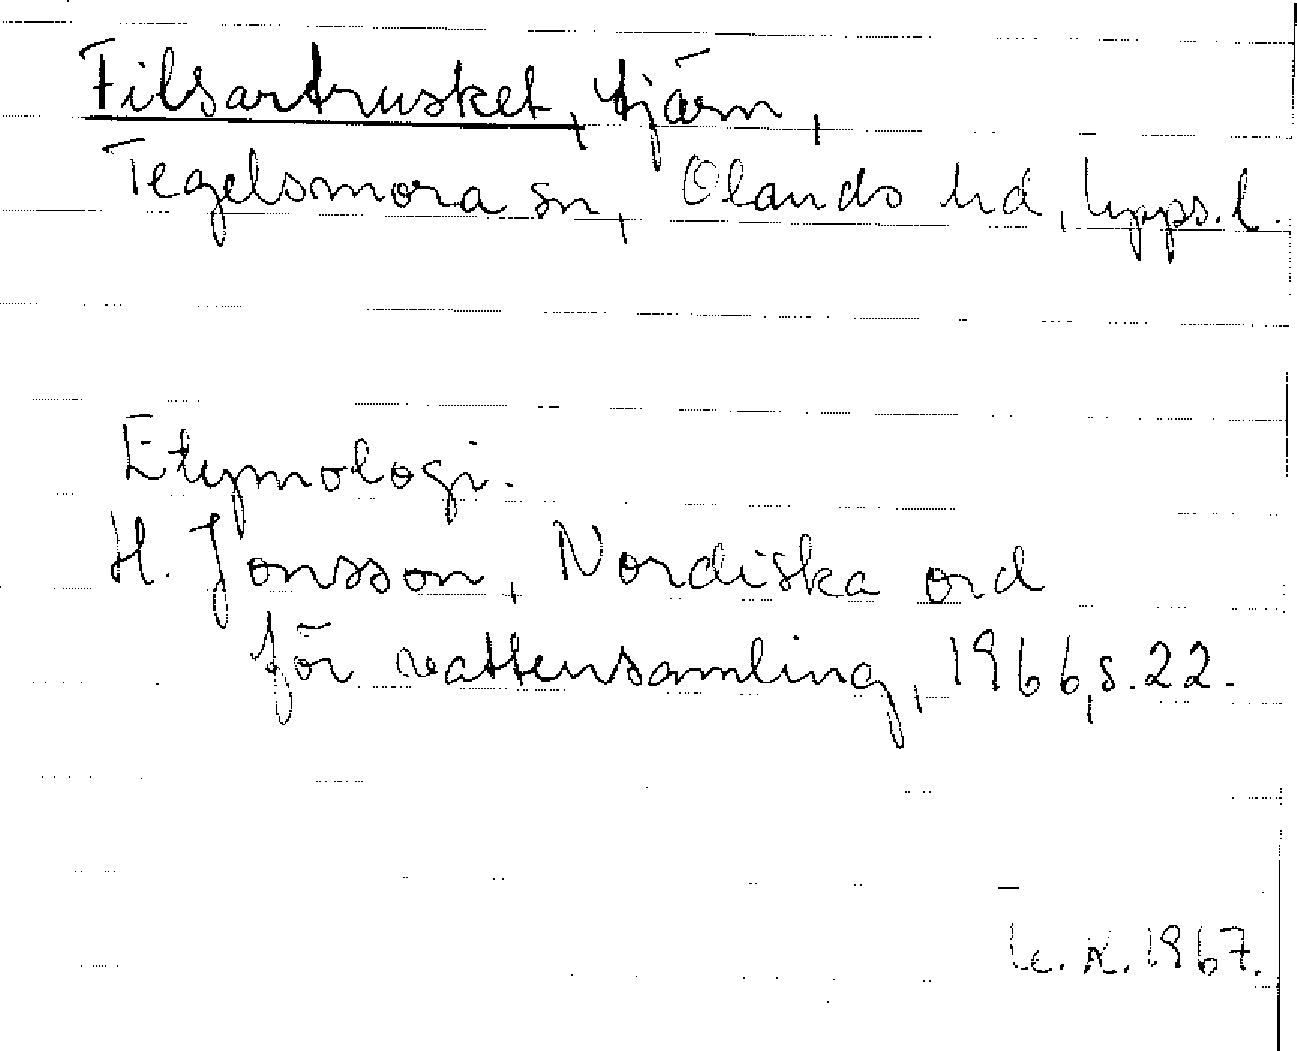 Filsartrusket, tjärn,
Tegelsmora sn, Olands hd, Upps. l.
Etymologi.
H. Jonsson, Nordiska ord
för vattensamling, 1966, s. 22.
1967.